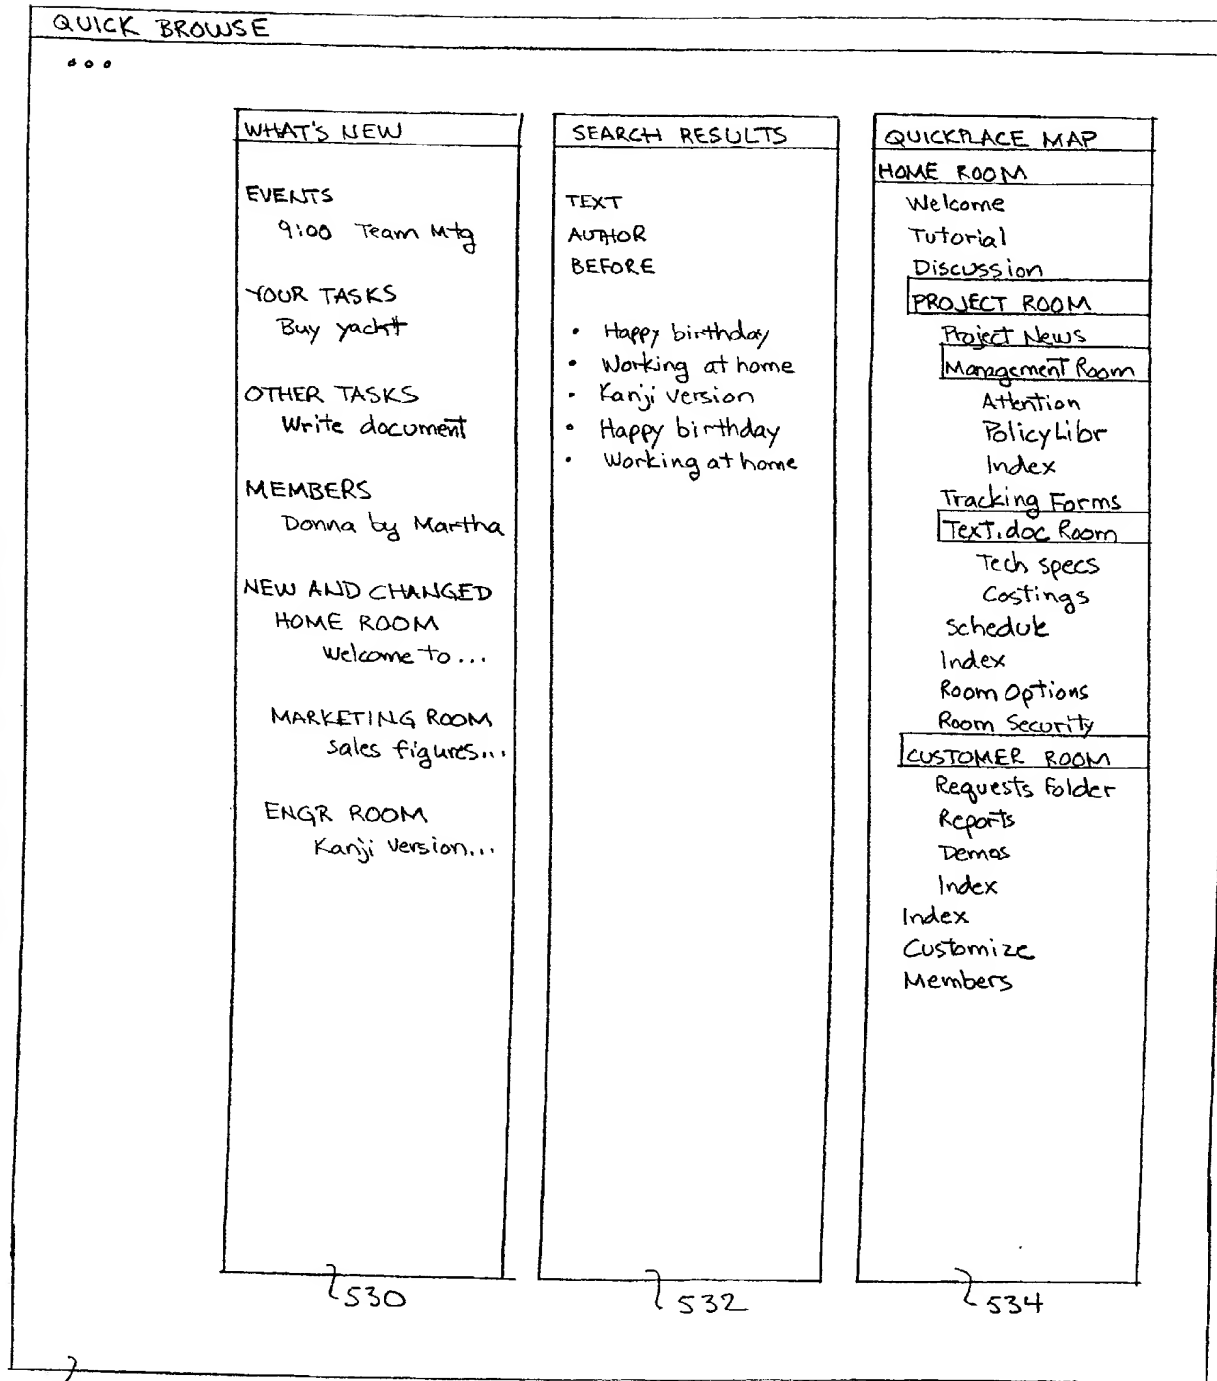 QUICK BROWSE
...
WHAT'S NEW
EVENTS
9:00 Team Mtg
YOUR TASKS
Buy yacht
OTHER TASKS
Write document
MEMBERS
Donna by Martha
NEW AND CHANGED
HOME ROOM
Welcome to...
MARKETING ROOM
Sales figures...
ENGR ROOM
Kanji version...
530
SEARCH RESULTS
TEXT
AUTHOR
BEFORE
• Happy birthday
• Working at home
• Kanji version
• Happy birthday
• Working at home
532
QUICKPLACE MAP
HOME ROOM
Welcome
Tutorial
Discussion
PROJECT ROOM
Project News
Management Room
Attention
PolicyLibr
Index
Tracking Forms
Text.doc Room
Tech specs
Costings
Schedule
Index
Room Options
Room Security
CUSTOMER ROOM
Requests Folder
Reports
Demos
Index
Index
Customize
Members
534